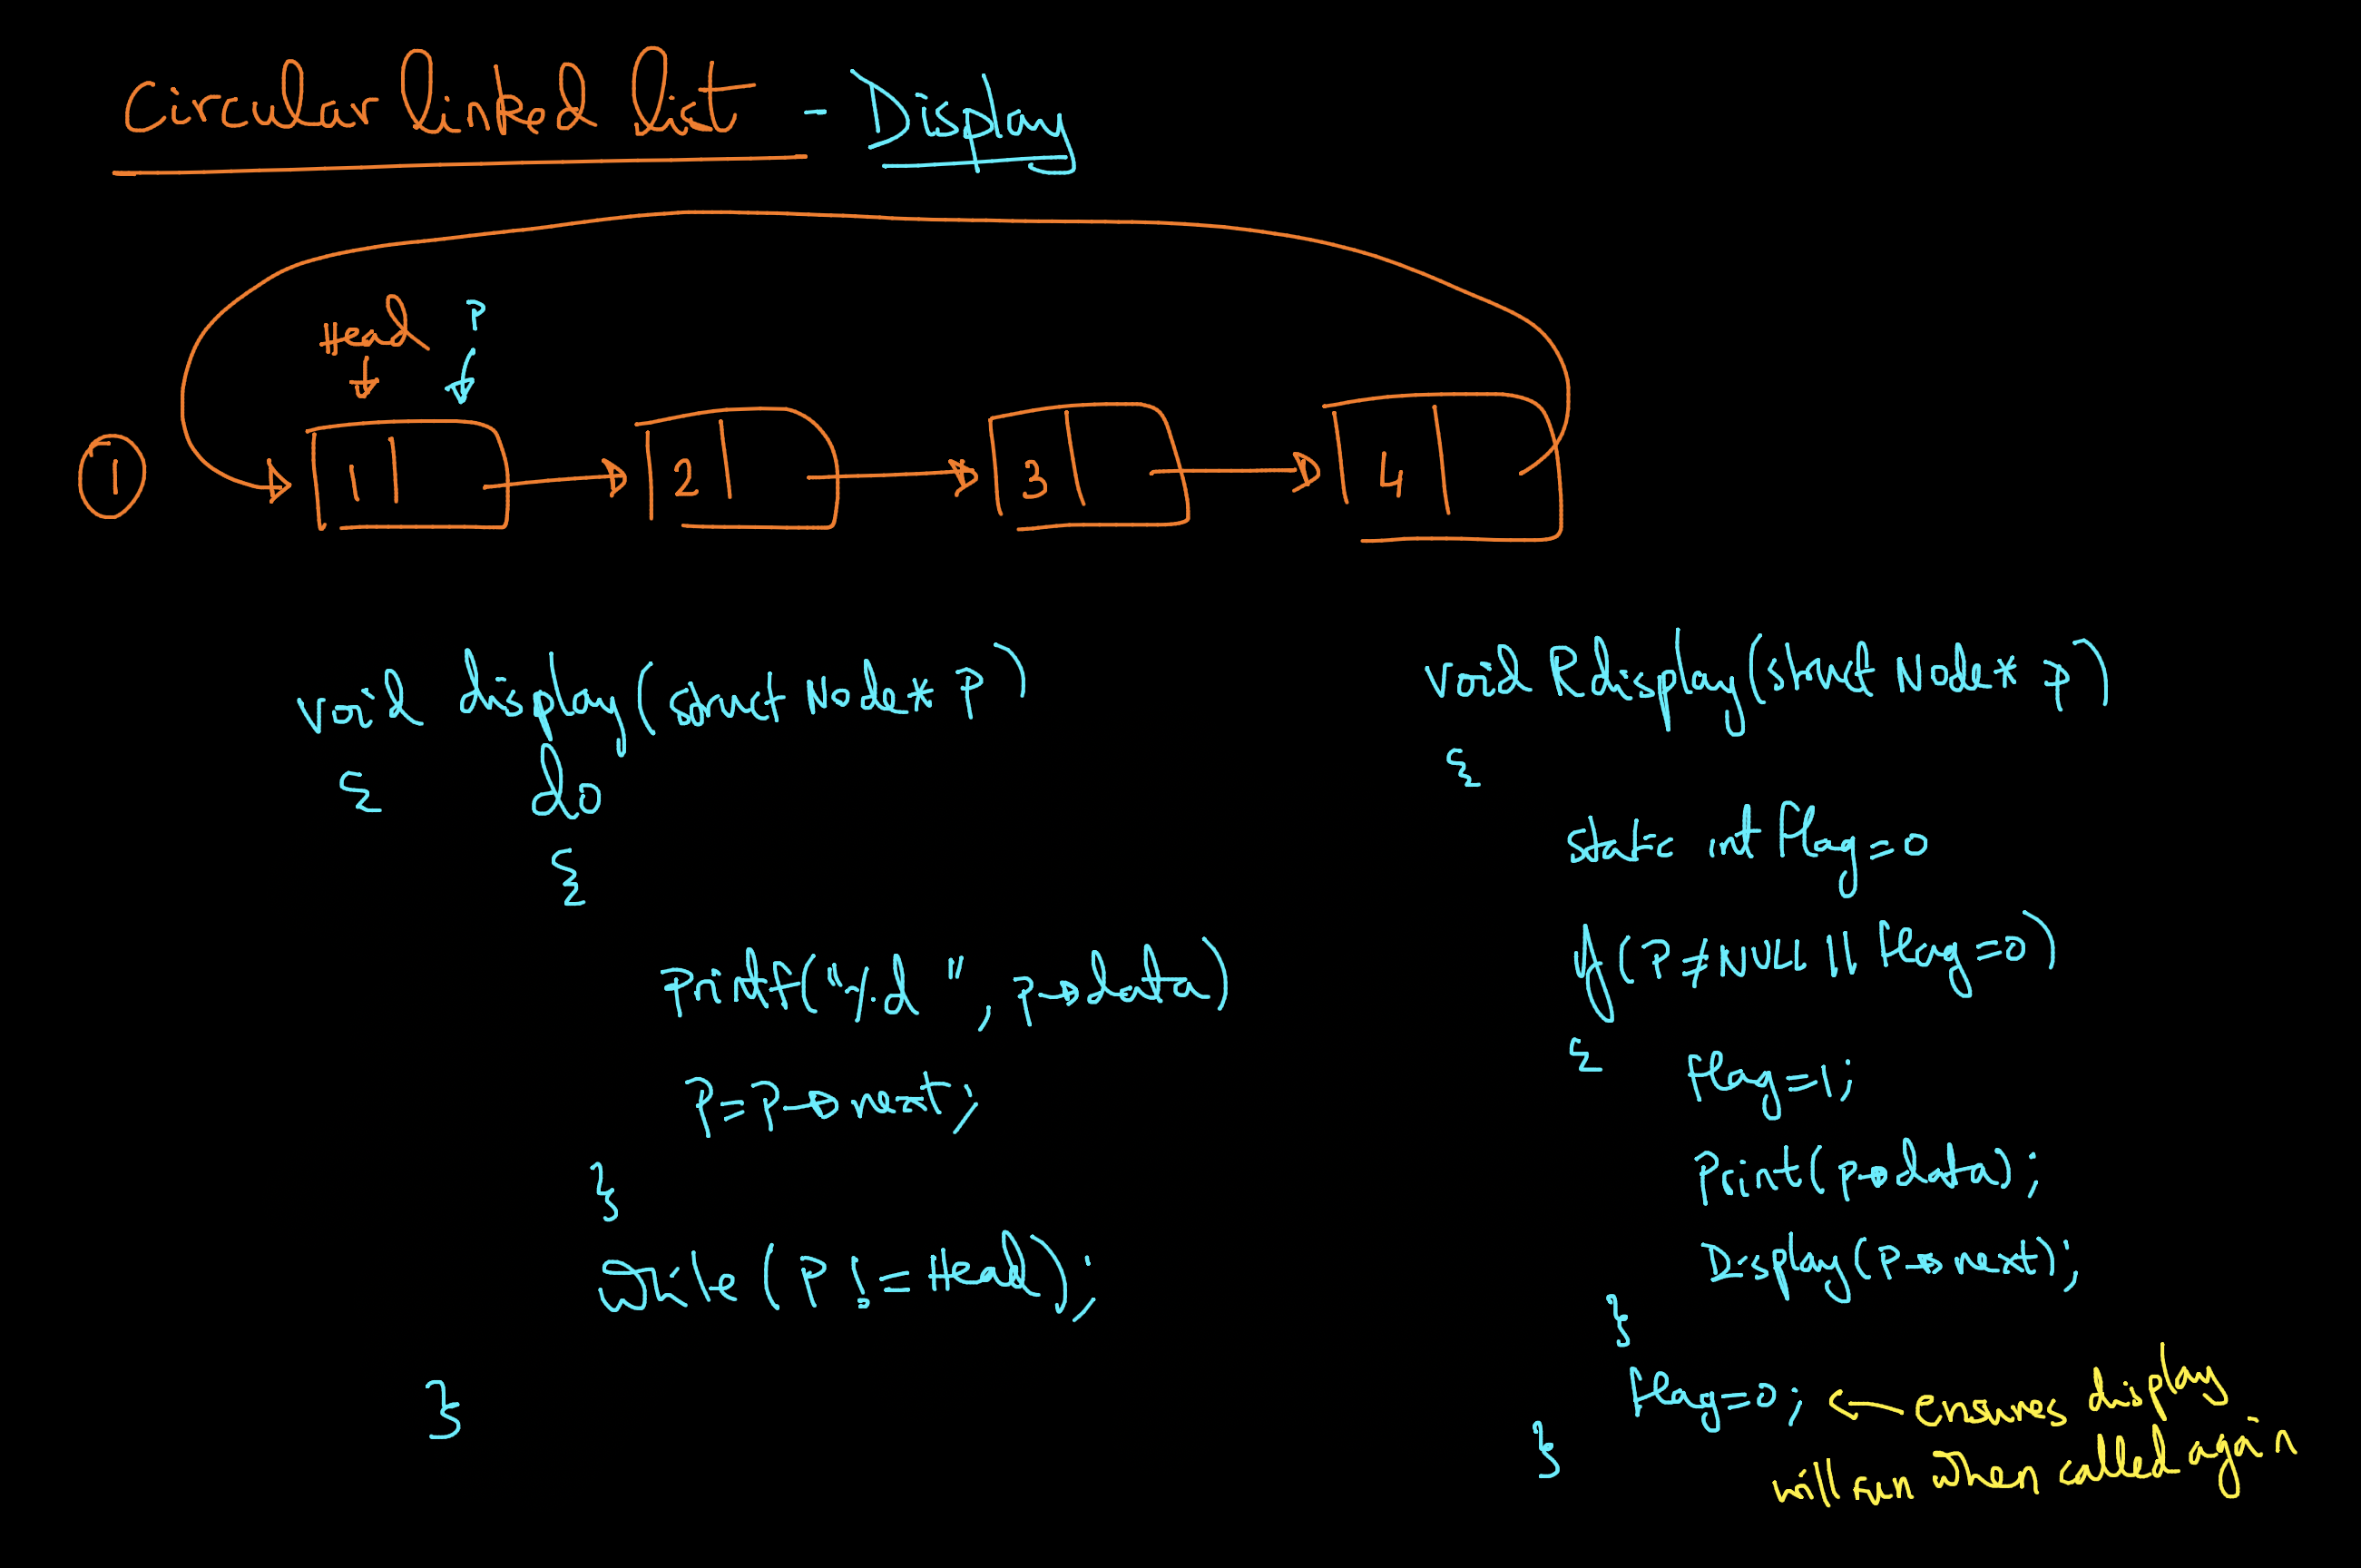 Circular linked list - Display
Head P
1
1 2 3 4
void display(struct Node* P)
{ do
{
Printf("%d ", p→data)
P=P→next;
}
while (P != Head);
}
void Rdisplay(struct Node* P)
{
static int flag=0
if (P≠NULL || flag=0)
{ flag=1;
Print(p→data);
Display(P→next);
}
flag=0; ← ensures display
will run when called again
}